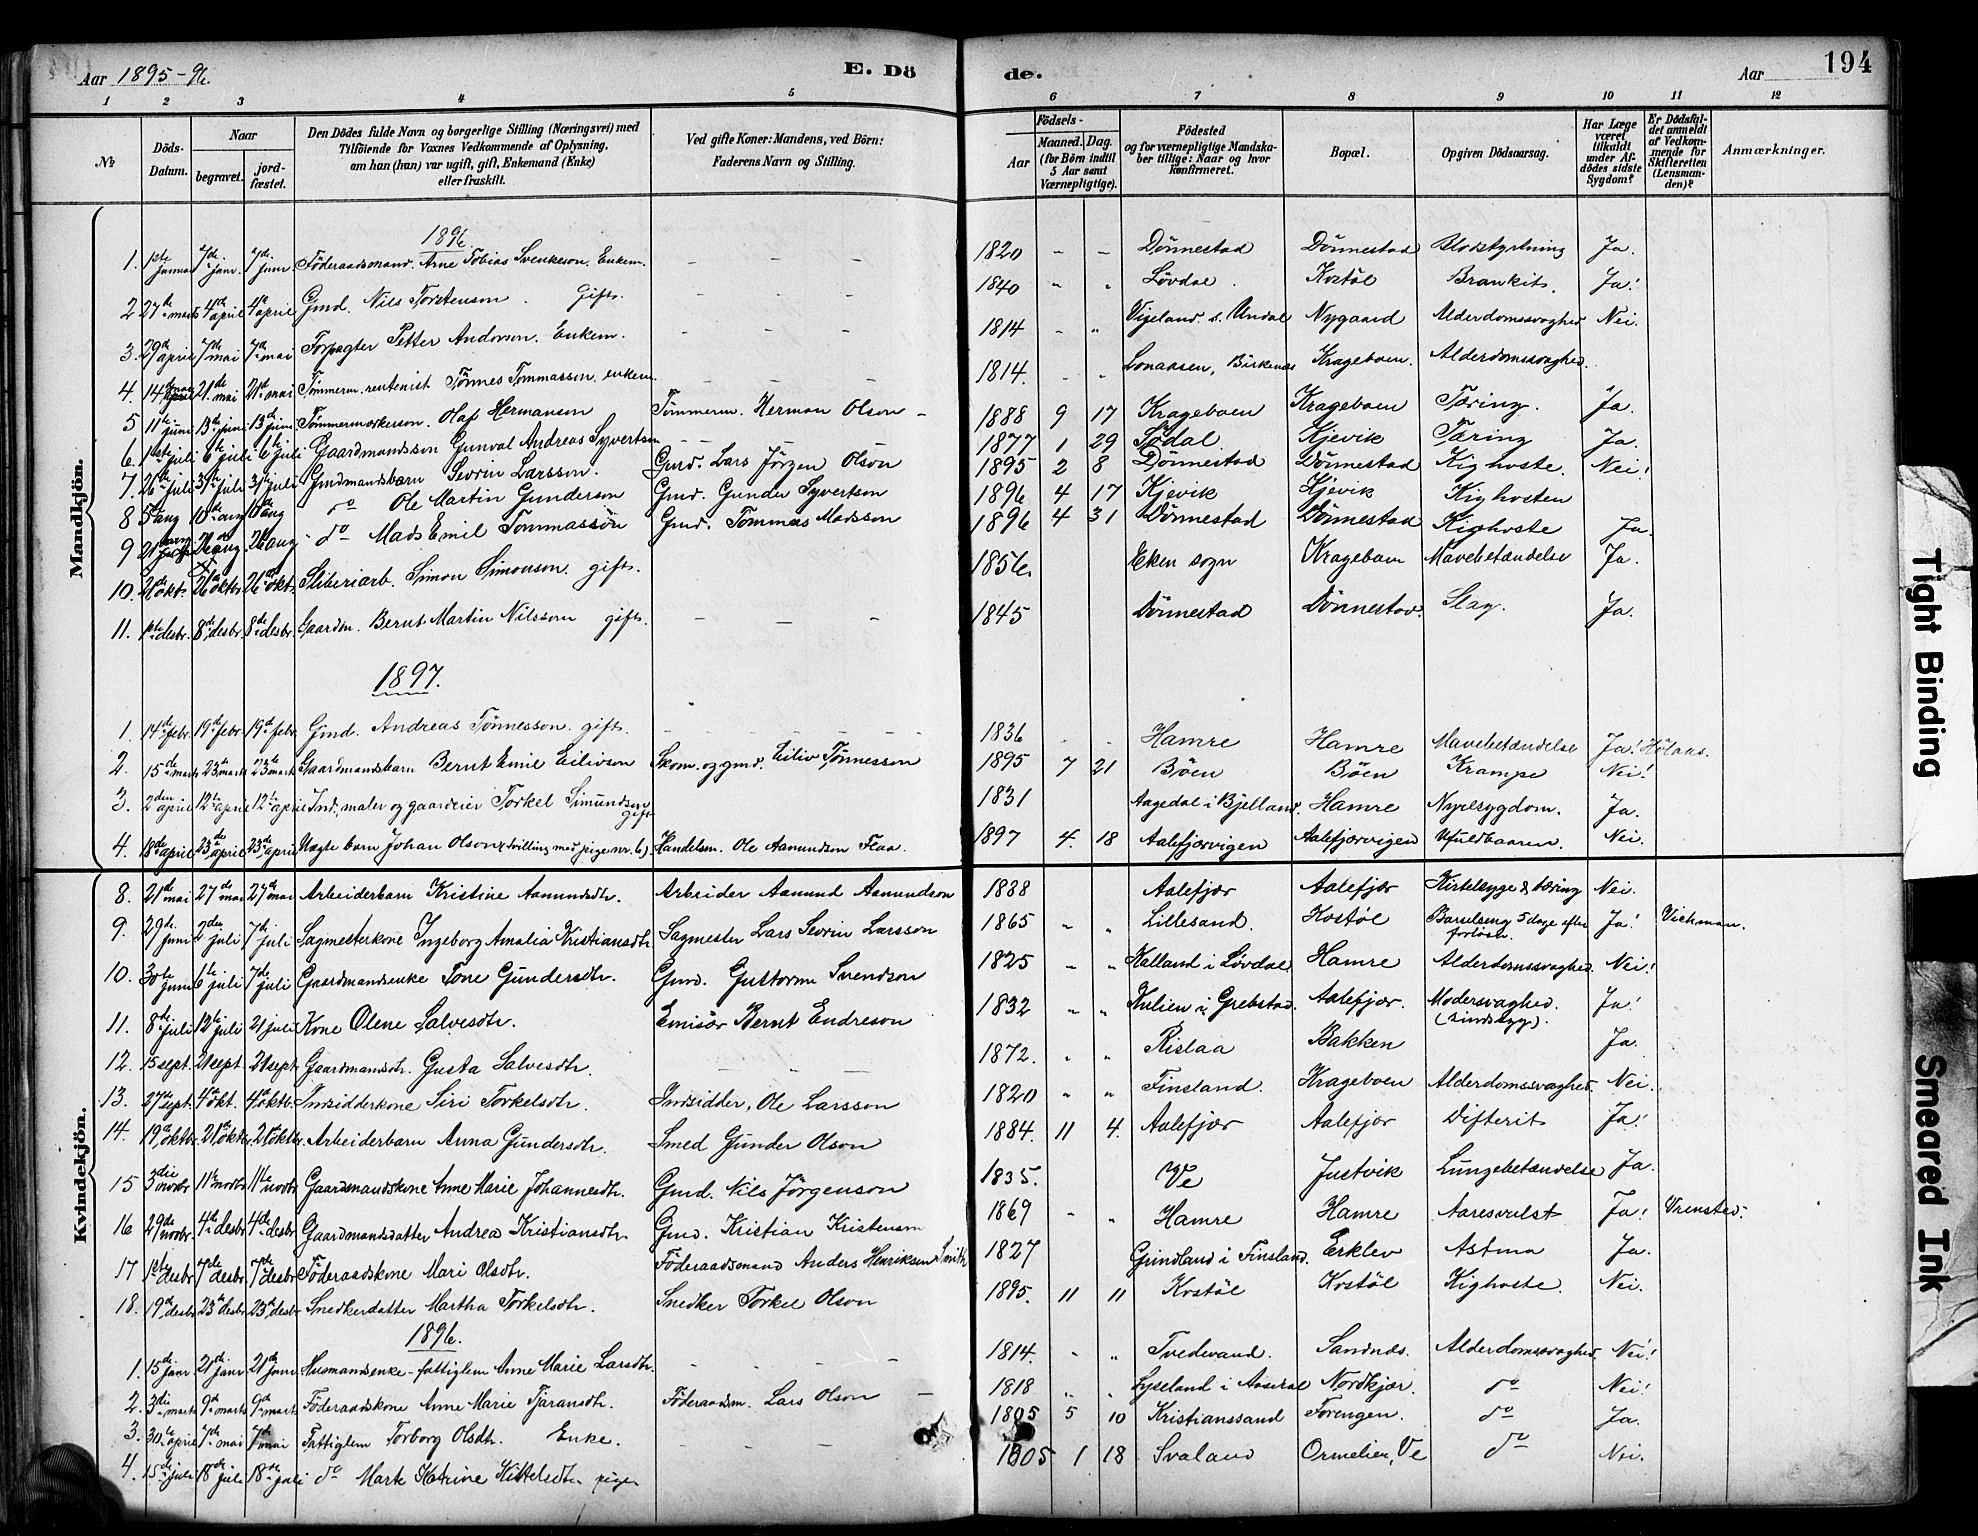 Aar 1895-96. E. Dö de. Aar 194
1 2 3 4 5 6 7 8 9 10 11 12
No Döds-Datum. Naar begravet. jordfæstet. Den Dödes fulde Navn og borgerlige Stilling (Næringsvei) med Tilföiende for Voxnes Vedkommende af Oplysning, om han (hun) var ugift, gift, Enkemand (Enke) eller fraskilt. Ved gifte Koner: Mandens, ved Börn: Faderens Navn og Stilling. Födsels- Aar Maaned. Dag. (for Börn indtil 5 Aar samt Værnepligtige). Födested og for værnepligtige Mandskaber tillige: Naar og hvor konfirmeret. Bopæl. Opgiven Dödsaarsag. Har Læge været tilkaldt under Afdödes sidste Sygdom? Er Dödsfaldet anmeldt af Vedkommende for Skifteretten (Lensmanden)? Anmærkninger.
Mandkjön.
1896
1. 1ste januar 7de janr. 7de janr Föderaadsmand. Arne Tobias Svenkeson. Enkem. – – – 1820 – – Dönnestad Dönnestad Blodstyrtning Ja.
2 27de marts 4de april 4de april Gmd. Nils Torstenson. Gift. – – – 1840 " " Lövdal. Kostöl Brankit. Ja!
3. 29de april 7de mai 7de mai Forpagter Petter Anderson. Enkem. – – – 1814 " " Vigeland. s. Undal Nygaard Alderdomssvaghed. Nei.
4. 14 mai 21de mai 21de mai Tömmerm. rentenist Tönnes Tommasson. enkem. – – – 1814. – – Lonaasen, Birkenes Krageboen. Alderdomssvaghed.
5 11te juni 13de juni 13de juni Olaf Hermanson Tömmerm. Herman Olson – 1888 9 17 Krageboen Krageboen Tæring. Ja.
6 1ste juli 6te juli 6te juli Gaardmandssön Gunval Andreas Syvertson – – 1877 1 29 Södal Kjevik Tæring Ja.
7. 26te juli 31te juli 31 juli Gmdmandsbarn Sevrin Larsson. Gmd. Lars Jörgen Olson 1895 2 8 Dönnestad Dönnestad Kighoste. Nei!
8 5te aug 10de aug 10 aug do Ole Martin Gunderson Gmd. Gunder Syvertson 1896 4 17 Kjevik Kjevik Kighosten
9 21 aug 26 aug 26 aug do Mads Emil Tommassön Gmd. Tommas Madsson 1896 4 31 Dönnestad Dönnestad Kighoste Ja.
10. 21de okt. 26de oktbr 26de okt. Sliberiarb. Simon Simonson. gift. 1856. Eken sogn Krageboen Mavebetændelse Ja.
11. 1ste desbr. 8de desbr. 8de desbr. Gaardm. Bernt Martin Nilsson gift. – – – 1845 Dönnestad Dönnestad. Slag. Ja.
1897.
1. 14de febr. 19de febr 19de febr Gmd. Andreas Tönnesson. gift. – – – 1836 Hamre Hamre Mavebetændelse Ja!
2. 15de marts 23de marts 23de marts Gaardmandsbarn Bernt Emil Eilivson Skom. og gmd. Eiliv Tönnesson 1895 7 21 Böen Böen Krampe Nei!
3. 2den april 12te april 12te april Ind., maler og gaardeier Torkel Simundson gift 1831 Aagedal i Bjelland. Hamre Nyresygdom. Ja.
4. 18de april 23de april 23de april Uægte barn Johan Olson (tvilling med pige nr. 6) Handelsm. Ole Aamundson Flaa. 1897 4. 18 Aalefjærvigen Aalefjærvigen Ufuldbaaren. Nei.
Kvindekjön.
8. 21de mai 27de mai 27de mai Arbeiderbarn Kristine Aamundsdtr. Arbeider Aamund Aamundson 1888 Aalefjær Aalefjær Kirtelsyge & tæring Nei.
9. 29de juni 2den juli 7de juli Sagmesterkone Ingeborg Amalia Kristiansdtr. Sagmester Lars Sevrin Larsson 1865 " " Lillesand. Kostöl Barselseng 5 dage efter forlösn. Ja!
10. 30te juni 6te juli 7de juli Gaardmandsenke Tone Gundersdtr. Gmd. Guttorm Svendson 1825 " " Kalland i Lövdal Hamre Alderdomssvaghed. Nei!
11. 8de juli 12te juli 21 juli Kone Olene Salvesdtr. Emisær Bernt Endreson 1832 " " Hulien i Grebstad. Aalefjær. Modersvaghed. (sindssyg). Ja!
12. 15 sept. 21 sept 21 sept. Gaardmandsdtr. Gusta Salvesdtr. – – – 1872. " " Rislaa Bakken Ja.
13. 27de sept. 4de okt. 4de oktb. Indsidderkone Siri Torkelsdtr. Indsidder, Ole Larsson 1820 " " Finsland. Krageboen Alderdomssvaghed. Nei.
14. 19de oktbr. 21de oktbr 21de oktbr Arbeiderbarn Anna Gundersdtr. Smed Gunder Olson 1884. 11 4. Aalefjær Aalefjær Difterit Ja!
15 3die novbr 11te novbr 11te novbr Gaardmandskone Anne Marie Johannesdtr. Gmd. Nils Jörgenson 1835. Ve Justvik Lungebetændelse Ja.
16 29de novbr 4de desbr 4de desbr. Gaardmandsdatter Andrea Kristiansdtr. Gmd. Kristian Kristenson 1869 " " Hamre Hamre Aaresvulst Ja!
17 1ste desbr 7de desbr 7de desbr Föderaadskone Mari Olsdtr. Föderaadsmand Anders Henrikson Smith 1827 Grindland i Finsland. Erklev Astma Ja.
18. 19de desbr 23de desbr 23de desbr Snedkerdatter Martha Torkelsdtr. Snedker Torkel Olson 1895. 11 11 Kostöl Kostöl Kighoste. Nei.
1896.
1. 15de janr 21de janr 21de janr Husmandsenke – fattiglem Anne Marie Larsdtr. – – – 1814. " " Tvedevand. Sandnæs. Alderdomssvaghed. Nei!
2. 3die marts 9de marts 9de marts Föderaadskone Anne Marie Tjæransdtr. Föderaadsm. Lars Olson – 1818 " " Lyseland i Aaseral Nordkjær. do Nei!
3. 30te april 7de mai 7de mai Fattiglem Torborg Olsdtr. Enke. – – – 1805 5 10 Kristianssand Torengen. do Ja.
4. 15de juli 18de juli 18de juli do Marte Katrine Kittelsdtr pige 1805 1 18 Svaland Ormelien, Ve do Nei.
Tight Binding
Smeared Ink